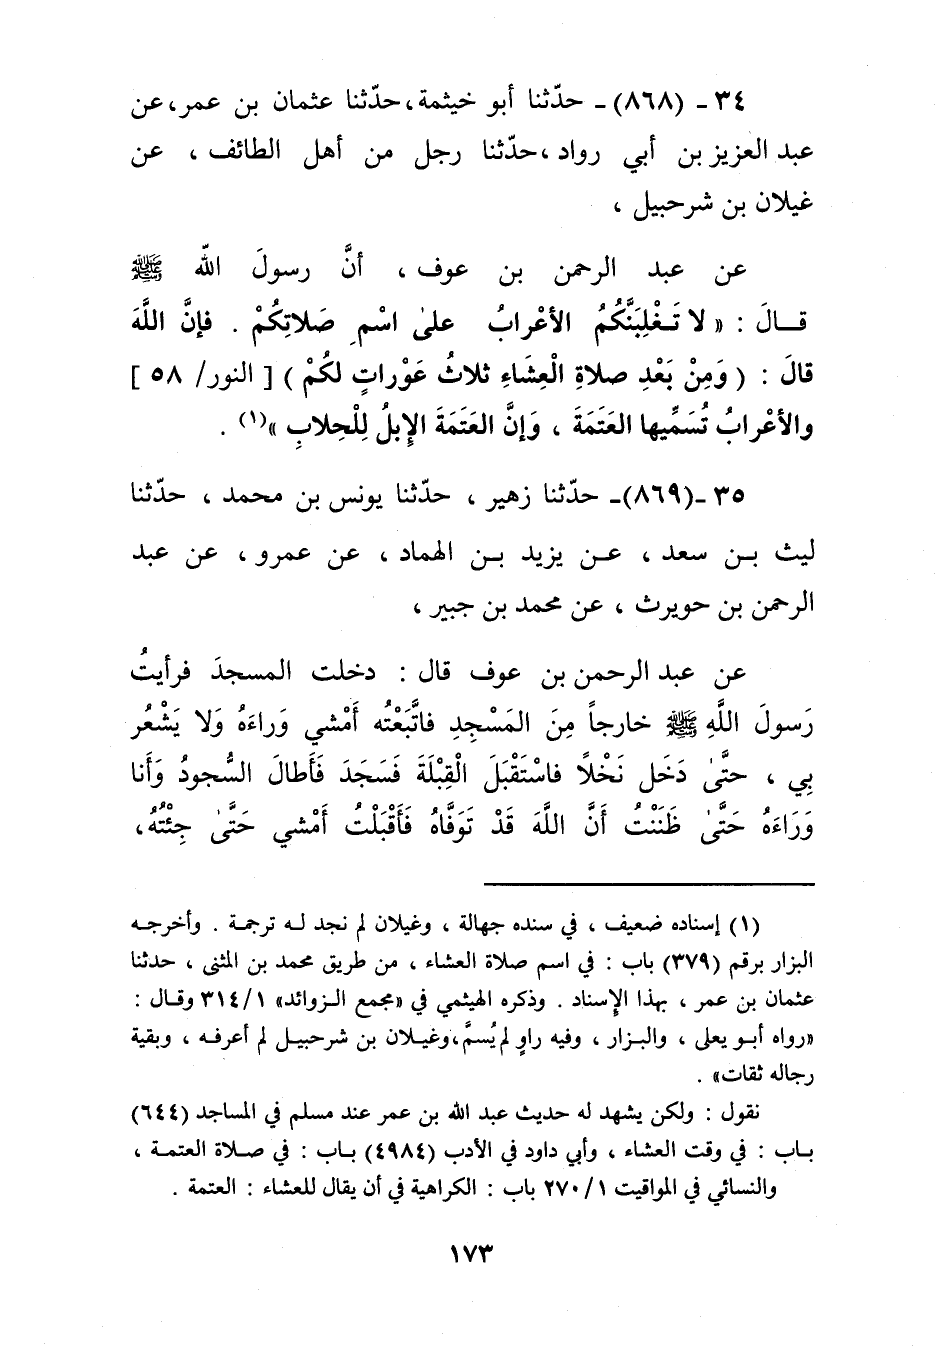 ٣٤ - (٨٦٨) - حدّثنا أبو خيثمة، حدّثنا عثمان بن عمر، عن
عبد العزيز بن أبي رواد، حدّثنا رجل من أهل الطائف ، عن
غيلان بن شرحبيل ،
عن عبد الرحمن بن عوف ، أنَّ رسولَ اللّه ﷺ
قـالَ : « لا تَـغْلِبَنَّكُمُ الأعْرابُ علىٰ اسْمِ صَلاتِكُمْ . فإنَّ اللَّهَ
قالَ : ( وَمِنْ بَعْدِ صلاةِ الْعِشَاءِ ثلاثُ عَوْراتٍ لكُمْ ) [ النور/ ٥٨ ]
والأعْرابُ تُسَمِّيها العَتَمَةَ ، وَإنَّ العَتَمَةَ الإبلُ لِلْحِلابِ »(١) .
٣٥ -(٨٦٩)- حدّثنا زهير ، حدّثنا يونس بن محمد ، حدّثنا
ليث بـن سعد ، عـن يزيد بـن الهماد ، عن عمرو ، عن عبد
الرحمن بن حويرث ، عن محمد بن جبير ،
عن عبد الرحمن بن عوف قال : دخلت المسجدَ فرأيتُ
رَسولَ اللَّهِ ﷺ خارجاً مِنَ المَسْجِدِ فاتَّبَعْتُه أَمْشي وَراءَهُ وَلا يَشْعُر
بِي ، حتَّىٰ دَخَل نَخْلاً فاسْتَقْبَلَ الْقِبْلَةَ فَسَجَدَ فَأَطالَ السُّجودُ وَأَنا
وَرَاءَهُ حَتَّىٰ ظَنَنْتُ أَنَّ اللَّهَ قَدْ تَوَفَّاهُ فَأَقْبَلْتُ أَمْشي حَتَّىٰ جِئْتُهُ،
(١) إسناده ضعيف ، في سنده جهالة ، وغيلان لم نجد لـه ترجمة . وأخرجـه
البزار برقم (٣٧٩) باب : في اسم صلاة العشاء ، من طريق محمد بن المثنى ، حدثنا
عثمان بن عمر ، بهذا الإسناد . وذكره الهيثمي في «مجمع الـزوائد» ٣١٤/١ وقـال :
«رواه أبـو يعلى ، والبـزار ، وفيه راوٍ لم يُسمَّ، وغيـلان بن شرحبيـل لم أعرفـه ، وبقية
رجاله ثقات» .
نقول : ولكن يشهد له حديث عبد الله بن عمر عند مسلم في المساجد (٦٤٤)
بـاب : في وقت العشاء ، وأبي داود في الأدب (٤٩٨٤) بـاب : في صـلاة العتمـة ،
والنسائي في المواقيت ٢٧٠/١ باب : الكراهية في أن يقال للعشاء : العتمة .
١٧٣